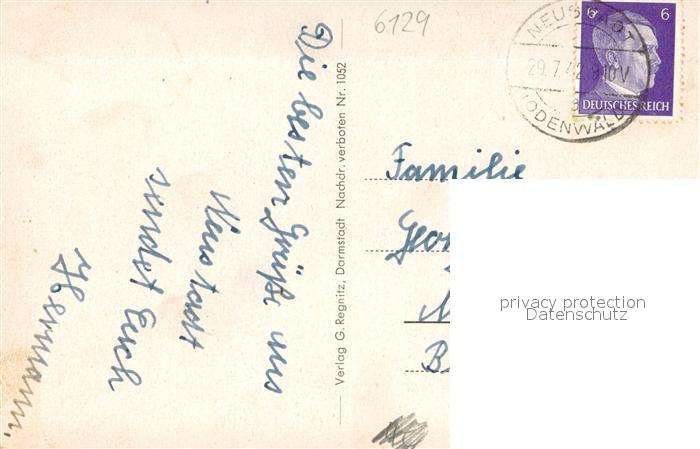 6129
NEUSTADT
29.7.42.9-10V
ODENWALD
6 6
DEUTSCHES REICH
Die besten Grüße aus
Neustadt
sendet Euch
Hermann.
Verlag G. Regnitz, Darmstadt Nachdr. verboten Nr. 1052
Familie
privacy protection
Datenschutz